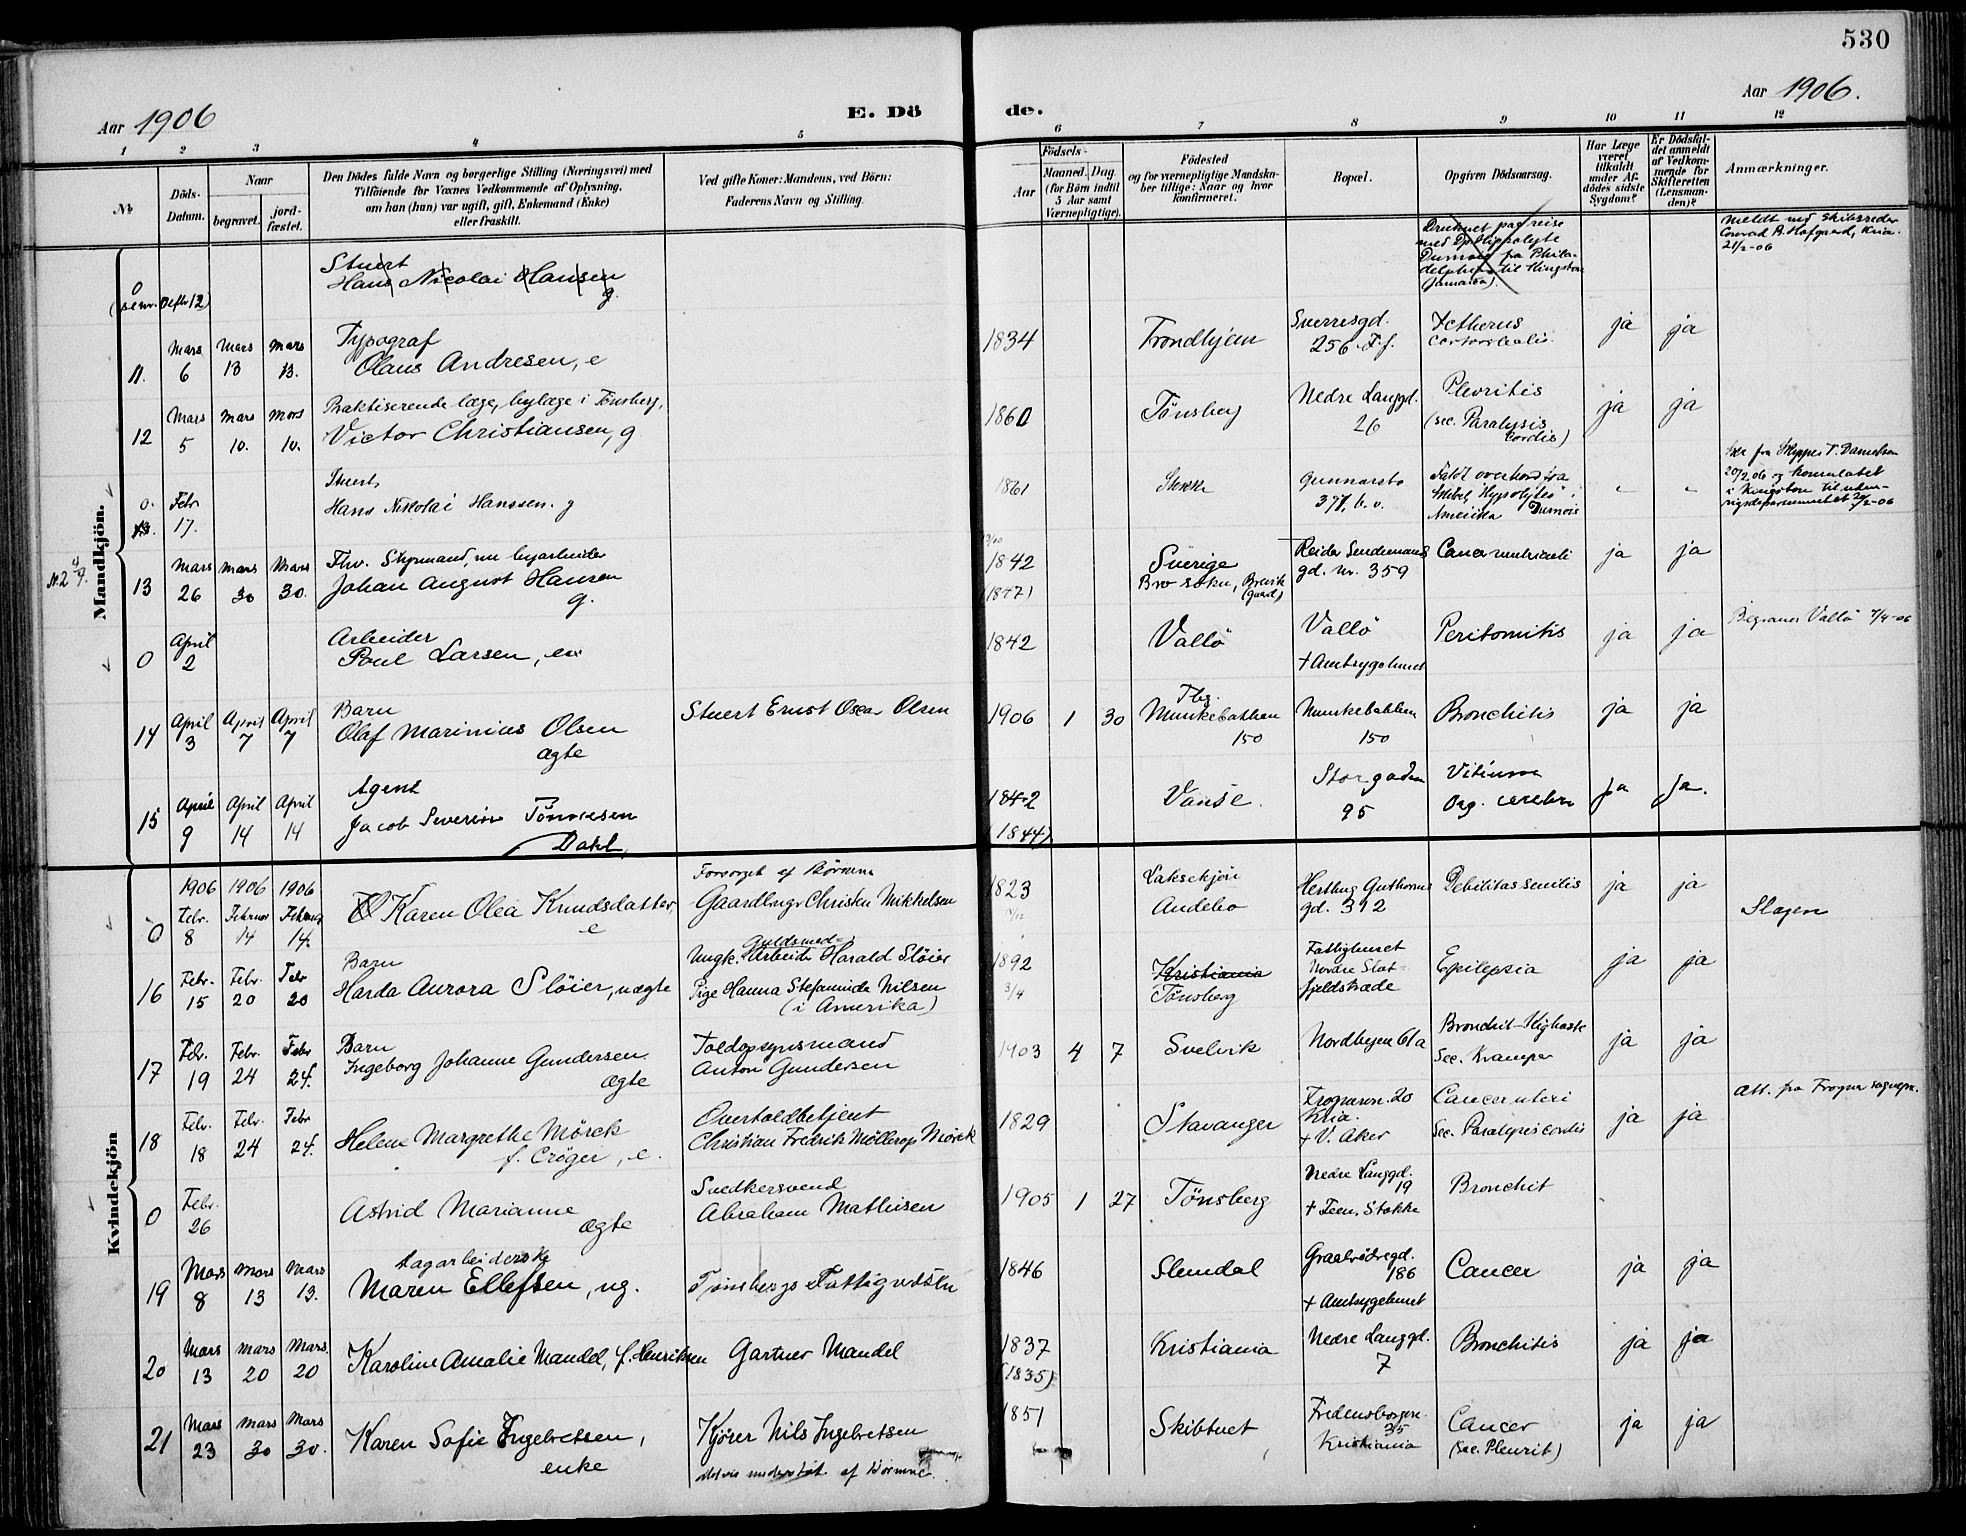 530
Aar 1906
E. Dö
de.
Aar 1906.
1 2 3 4 5 6 7 8 9 10 11 12
No
Döds-Datum.
Naar
begravet.
jordfæstet.
Den Dödes fulde Navn og borgerlige Stilling (Næringsvei) med
Tilföiende for Voxnes Vedkommende af Oplysning,
om han (hun) var ugift, gift, Enkemand (Enke)
eller fraskilt.
Ved gifte Koner: Mandens, ved Börn:
Faderens Navn og Stilling.
Födsels-
Aar
Maaned.
Dag.
(for Börn indtil
5 Aar samt
Værnepligtige).
Födested
og for værnepligtige Mandskaber tillige: Naar og hvor
konfirmeret.
Bopæl.
Opgiven Dödsaarsag.
Har Læge
været
tilkaldt
under Afdödes sidste
Sygdom?
Er Dödsfaldet anmeldt
af Vedkommende for
Skifteretten
(Lensmanden)?
Anmærkninger.
Mandkjön.
0
Stuert
Hans Nicolai Hansen
g.
Druknet paa reise
med
fra Philadelphia til Kingston
Jamaica).
Meldt med Skibsreder
21/2-06
11. Mars 6 Mars 13 Mars 13.
Typograf
Olaus Andresen, e
1834
Trondhjem
Sverresgd.
256
ja ja
12 Mars 5 Mars 10. Mars 10.
Praktiserende læge, bylæge i Tönsberg,
Victor Christiansen, g
1860
Tønsberg
Nedre Langgd.
26
Plevritis
(sec. Paralysis
Cordis)
ja ja
0. Febr 17.
Stuert
Hans Nikolai Hanssen. g
1861
Gunnarsbo
Faldt overbord fra
Amerika
20/2 06 og konsulatet
i Kingston til udenrigsdepartementet
13 Mars 26 Mars 30 Mars 30.
Fhv. Styrmand, nu byarbeider
Johan August Hansen
g.
1842
(1847)
Sverige
Bro sokn, Brevik
(gaard)
Reidar Sendemans
gd. nr. 359
Cancer ventriculi
ja ja
0 April 2
Arbeider
Poul Larsen, em
1842
Vallö
Vallö
+ Amtsygehuset
Peritonitis
ja ja
Begraves Vallö 7/4-06
14 April 3 April 7 April 7
Barn
Olaf Marinius Olsen
ægte
Stuert Ernst Oscar Olsen
1906 1 30
Tbg.
Munkebakken
150
Munkebakken
150
Bronchitis
ja ja
15 April 9 April 14 April 14
Agent
Jacob Severin Tönnesen
Dahl,
1842
(1844)
Vanse.
Storgaden
95
Vitium
Org. cerebri
Ja Ja.
Kvindekjön
0 1906 Febr. 8 1906 Februar 14 1906 Februar 14.
Karen Olea Knudsdatter
e
Forsørget af Børnene
Gaardbruger Christen Mikkelsen
1823
Andebo
Herthug Guthorms
gd. 312
Debilitas senilis
ja ja
Slagen
16 Febr. 15 Febr. 20 Febr 20
Barn
Harda Aurora Slöier, uægte
Guldsmed-
Ungk. Arbeider Harald Slöier
Pige Hanna Stefanuida Nilsen
(i Amerika)
1892
3/4
Kristiania
Tønsberg
Fattighuset
Nordre Slotsfjeldstræde
Epilepsia
ja ja
17 Febr. 19 Febr. 24 Febr 24.
Barn
Ingeborg Johanne Gundersen
ægte
Toldopsynsmand
Anton Gundersen
1903 4 7
Svelvik
Nordbyen 61a
Bronchit-Kighoste
Sec. Kramper
ja ja
18 Febr. 18 Febr. 24 Febr 24.
Helene Margrethe Mörck
f. Cröger, e.
Overtoldbetjent
Christian Fredrik Möllerop Mörck
1829
Stavanger
Frognervn. 20
Kria.
+ V. Aker
Cancer uteri
Sec. Paralysis cordis
ja ja
Att. fra Frogner sognepr.
0 Febr. 26
Astrid Marianne
ægte
Snedkersvend
Abraham Mathisen
1905 1 27
Tønsberg
Nedre Langgd.
19
+ Feen, Stokke
Bronchit
19 Mars 8 Mars 13 Mars 13.
Dagarbeiderske
Maren Ellefsen, ug.
Tønsbergs Fattigvæsen
1846
Slemdal
Graabrödregd.
186
+ Amtsygehuset
Cancer
ja ja
20 Mars 13 Mars 20 Mars. 20
Karoline Amalie Mandel, f. Henriksen
Gartner Mandel
1837
(1835)
Kristiania
Nedre Langgd.
7
Bronchitis
ja ja
21 Mars 23 Mars 30 Mars 30.
Karen Sofie Ingebretsen,
enke
Kjörer Nils Ingebretsen
delvis understøt. af Børnene.
1851
Skibtvet
Fredensborgvn.
35
Kristiania
Cancer
(sec. Pleurit)
ja ja